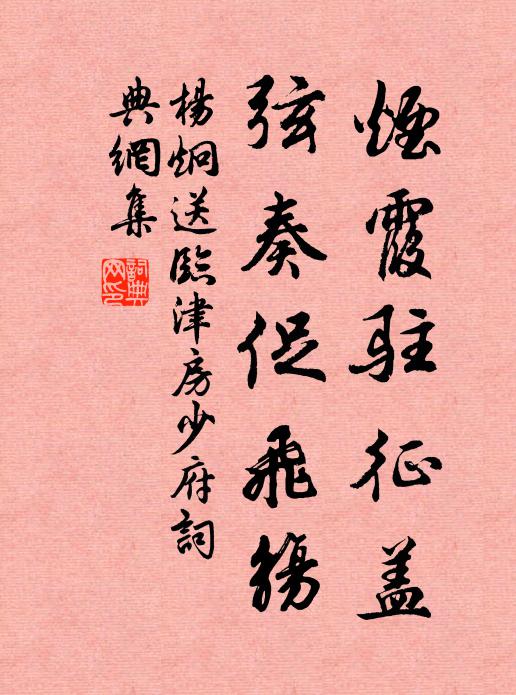 煙霞駐征蓋
弦奏促飛觴
楊炯送臨津房少府詞
典網集
詞典
网印